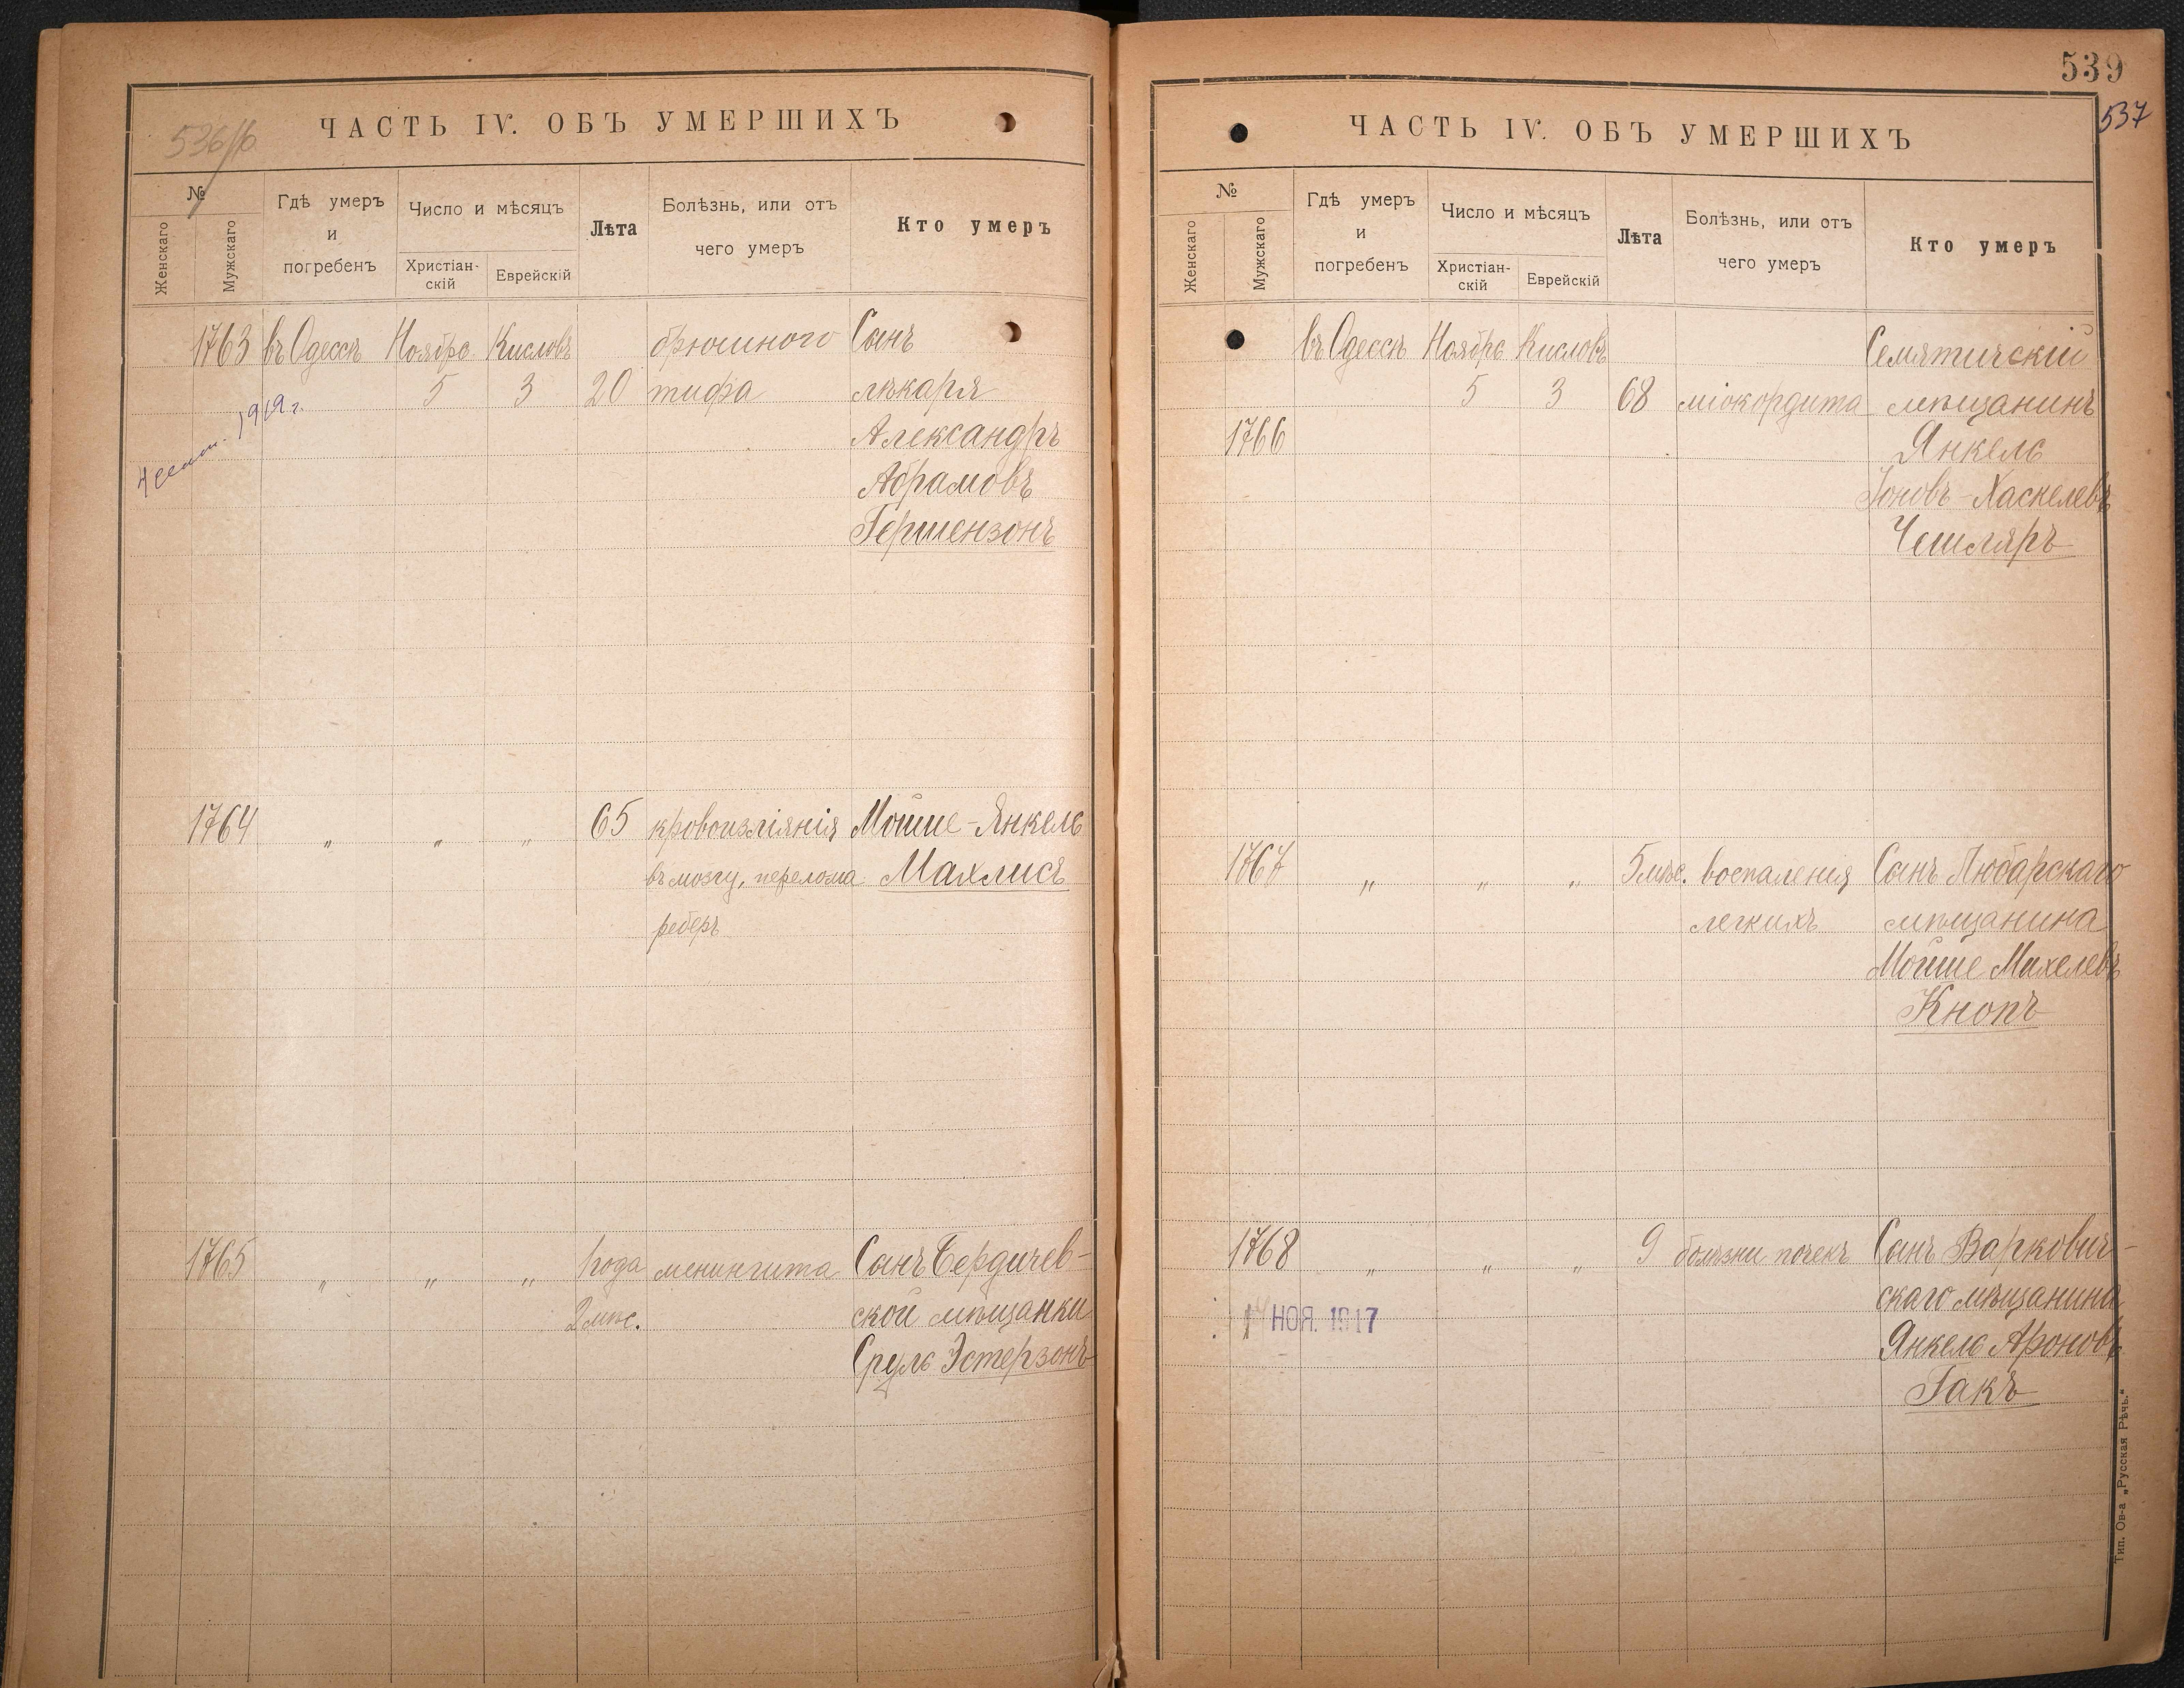 536/б
ЧАСТЬ IV. ОБЪ УМЕРШИХЪ
№
Женскаго
Мужскаго
Гдѣ умеръ
и
погребенъ
Число и мѣсяцъ
Христіан-
скій
Еврейскій
Лѣта
Болѣзнь, или отъ
чего умеръ
Кто умеръ
1763 въ Одессѣ Ноябрь Кисловъ брюшного Сынъ
5 3 20 тифа лѣкаря
1919 г.
Александръ
Абрамовъ
Гершензонъ
1764 " " " 65 кровоизліянія Мойше-Янкель
въ мозгу, перелома Махлисъ
реберъ
1765 " " " 1 года менингита Сынъ Бердичев-
2 мѣс. ской мѣщанки
Сруль Эстерзонъ
539
537
ЧАСТЬ IV. ОБЪ УМЕРШИХЪ
№
Женскаго
Мужскаго
Гдѣ умеръ
и
погребенъ
Число и мѣсяцъ
Христіан-
скій
Еврейскій
Лѣта
Болѣзнь, или отъ
чего умеръ
Кто умеръ
въ Одессѣ Ноябрь Кисловъ Семятичскій
5 3 68 міокордита мѣщанинъ
1766 Янкель
Іоновъ-Хаскелевъ
Чешляръ
1767 " " " 5 мѣс. воспаленія Сынъ Любарскаго
легкихъ мѣщанина
Мойше Михелевъ
Кнопъ
1768 " " " 9 болѣзни почекъ Сынъ Варкович-
НОЯ. 1917 скаго мѣщанина
Янкель Ароновъ
Гакъ
Тип. Ов-а „Русская Рѣчь.“